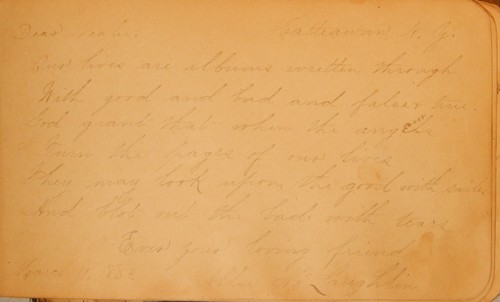 Dear
Matteawan N. Y.
Our lives are albums written through
With good and bad and false or true.
God grant that when the angels
Turn the pages of our lives
They may look upon the good with smiles
And blot out the bad with tears
Ever your loving friend
McLaughlin